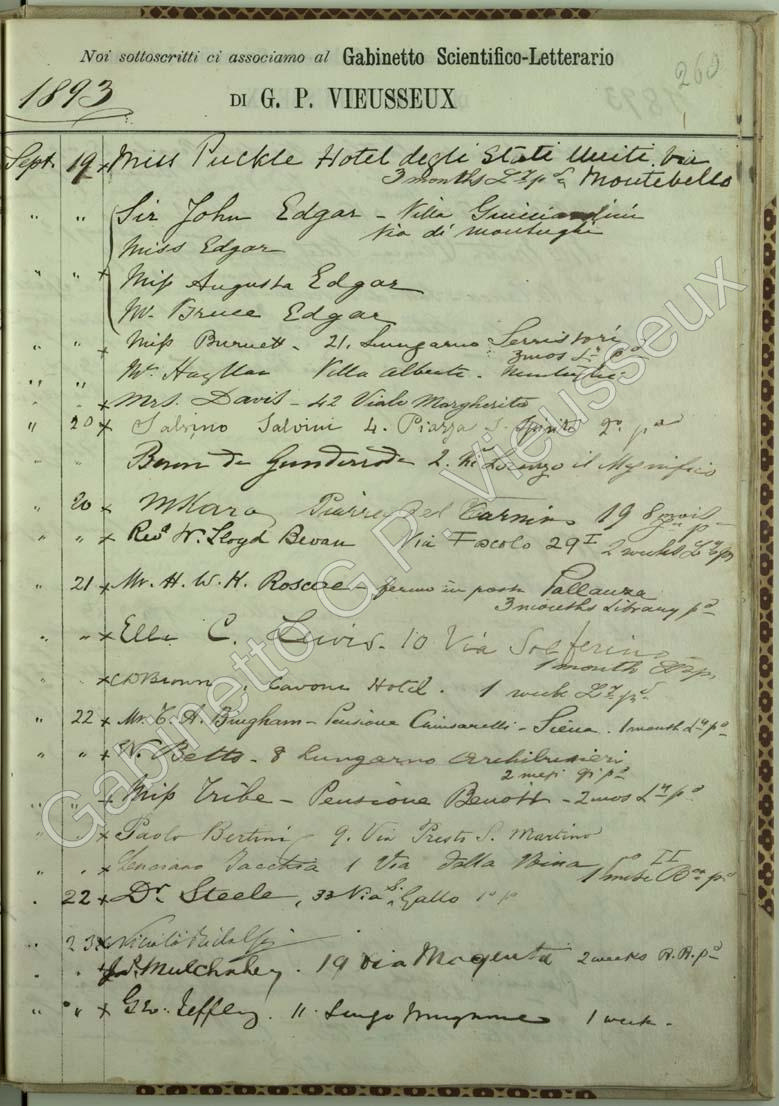 Noi sottoscritti ci associamo al Gabinetto Scientifico-Letterario
260
1893
DI G. P. VIEUSSEUX
Sept. 19 x Miss Puckle Hotel degli Stati Uniti. Via
3 months L^y p^d Montebello
" " Sir John Edgar - Villa Guicciardini
Via di Montughi
Miss Edgar
" " x Miss Augusta Edgar
Mr Bruce Edgar
" " x Miss Burnett - 21. Lungarno Serristori
3 mos L^y p^d
" " Villa
" x Mrs. Davis - 42 Viale Margherita
" 20 x Sabino Salvini 4. Piazza S. Spirito 2°
Baron de Gunderrode 2. Lorenzo il Magnifico
" 20 x Piazza del Carmine 19
" " x Rev^d W. Lloyd Bevan Via Foscolo 29 I 2 weeks L^y p^d
" 21 x Mr. H. W. H. Roscoe - fermo in posta Pallanza
3 months Library p^d
" " x Ella C. Lewis. 10 Via Solferino
1 month
x Brown, Cavour Hotel. 1 week L^y p^d
" 22 x Mr. C. A. Bingham - Pensione Chiusarelli - Siena. 1 month L^y p^d
" x W. Betts - 8 Lungarno Archibusieri
2 mesi
" " x Miss Tribe - Pensione Benoit - 2 mos L^y p^d
" " x Paolo Bertini 9. Via Presto S. Martino
" x Luciano 1 Via della
1 mese
" 22 x Dr Steele, 33 Via S. Gallo
" 23 x Nicolò Ridolfi
" x J. P. Mulchahey. 19 Via Magenta 2 weeks R.R. p^d
" " x Geo. Jeffery. 11. Lungo Mugnone 1 week.
Gabinetto G.P. Vieusseux